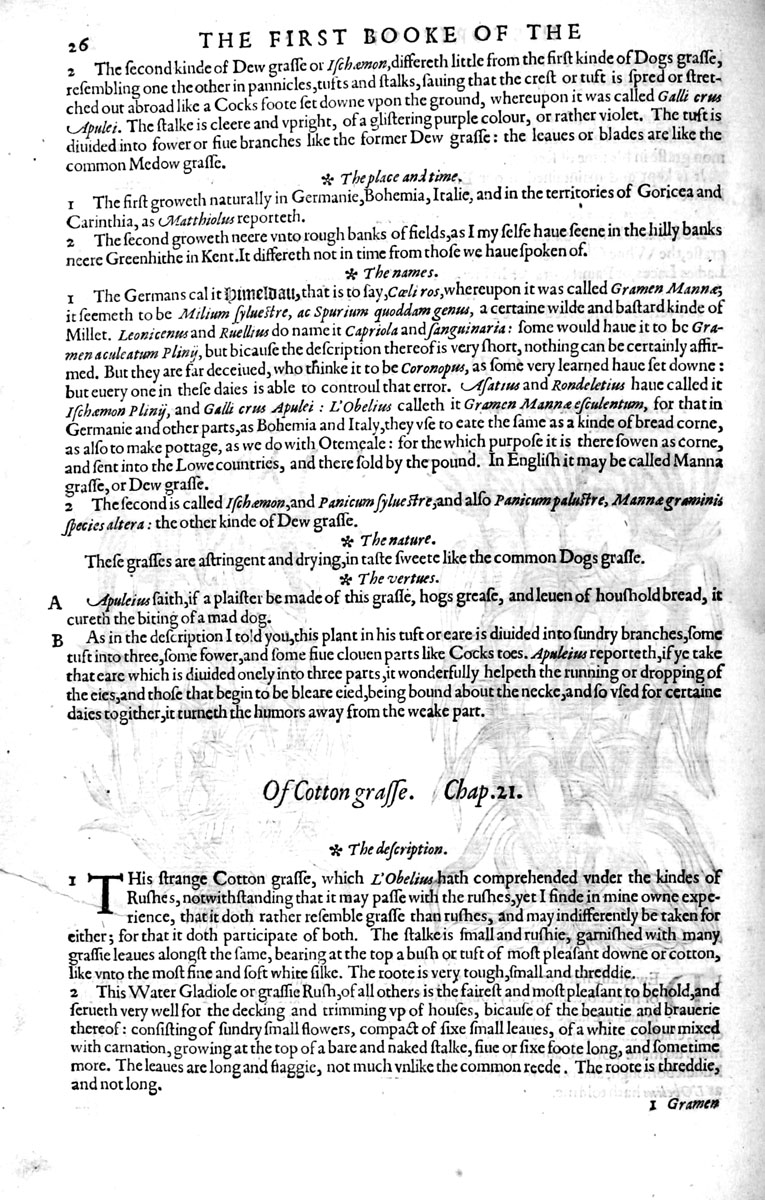 26 THE FIRST BOOKE OF THE
2 The ſecond kinde of Dew graſſe or Iſchæmon, differeth little from the firſt kinde of Dogs graſſe,
reſembling one the other in pannicles, tufts and ſtalks, ſauing that the creſt or tuft is ſpred or ſtret-
ched out abroad like a Cocks foote ſet downe vpon the ground, whereupon it was called Galli crus
Apulei. The ſtalke is cleere and vpright, of a gliſtering purple colour, or rather violet. The tuft is
diuided into fower or fiue branches like the former Dew graſſe: the leaues or blades are like the
common Medow graſſe.
✻ The place and time.
1 The firſt groweth naturally in Germanie, Bohemia, Italie, and in the territories of Goricea and
Carinthia, as Matthiolus reporteth.
2 The ſecond groweth neere vnto rough banks of fields, as I my ſelfe haue ſeene in the hilly banks
neere Greenhithe in Kent. It differeth not in time from thoſe we haue ſpoken of.
✻ The names.
1 The Germans cal it Himeldau, that is to ſay, Cæli ros, whereupon it was called Gramen Mannæ;
it ſeemeth to be Milium ſylueſtre, ac Spurium quoddam genus, a certaine wilde and baſtard kinde of
Millet. Leonicenus and Ruellius do name it Capriola and ſanguinaria: ſome would haue it to be Gra-
men aculeatum Plinij, but bicauſe the deſcription thereof is very ſhort, nothing can be certainly affir-
med. But they are far deceiued, who thinke it to be Coronopus, as ſome very learned haue ſet downe:
but euery one in theſe daies is able to controul that error. Aſatius and Rondeletius haue called it
Iſchæmon Plinij, and Galli crus Apulei: L'Obelius calleth it Gramen Mannæ eſculentum, for that in
Germanie and other parts, as Bohemia and Italy, they vſe to eate the ſame as a kinde of bread corne,
as alſo to make pottage, as we do with Otemeale: for the which purpoſe it is there ſowen as corne,
and ſent into the Lowe countries, and there ſold by the pound. In Engliſh it may be called Manna
graſſe, or Dew graſſe.
2 The ſecond is called Iſchæmon, and Panicum ſylueſtre, and alſo Panicum paluſtre, Mannæ graminis
ſpecies altera: the other kinde of Dew graſſe.
✻ The nature.
Theſe graſſes are aſtringent and drying, in taſte ſweete like the common Dogs graſſe.
✻ The vertues.
A Apuleius ſaith, if a plaiſter be made of this graſſe, hogs greaſe, and leuen of houſhold bread, it
cureth the biting of a mad dog.
B As in the deſcription I told you, this plant in his tuft or eare is diuided into ſundry branches, ſome
tuft into three, ſome fower, and ſome fiue clouen parts like Cocks toes. Apuleius reporteth, if ye take
that eare which is diuided onely into three parts, it wonderfully helpeth the running or dropping of
the eies, and thoſe that begin to be bleare eied, being bound about the necke, and ſo vſed for certaine
daies togither, it turneth the humors away from the weake part.
Of Cotton graſſe. Chap. 21.
✻ The deſcription.
1 THis ſtrange Cotton graſſe, which L'Obelius hath comprehended vnder the kindes of
Ruſhes, notwithſtanding that it may paſſe with the ruſhes, yet I finde in mine owne expe-
rience, that it doth rather reſemble graſſe than ruſhes, and may indifferently be taken for
either; for that it doth participate of both. The ſtalke is ſmall and ruſhie, garniſhed with many
graſſie leaues alongſt the ſame, bearing at the top a buſh or tuft of moſt pleaſant downe or cotton,
like vnto the moſt fine and ſoft white ſilke. The roote is very tough, ſmall and threddie.
2 This Water Gladiole or graſſie Ruſh, of all others is the faireſt and moſt pleaſant to behold, and
ſerueth very well for the decking and trimming vp of houſes, bicauſe of the beautie and brauerie
thereof: conſiſting of ſundry ſmall flowers, compact of ſixe ſmall leaues, of a white colour mixed
with carnation, growing at the top of a bare and naked ſtalke, fiue or ſixe foote long, and ſometime
more. The leaues are long and flaggie, not much vnlike the common reede. The roote is threddie,
and not long.
1 Gramen